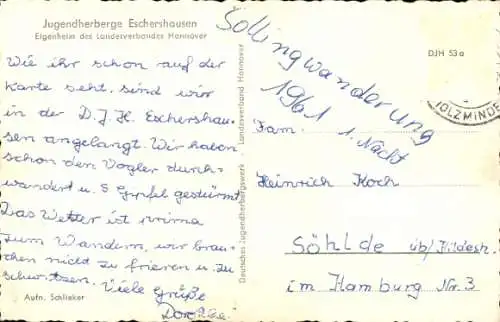 Jugendherberge Eschershausen
Eigenheim des Landesverbandes Hannover
Wie ihr schon auf der
Karte seht, sind wir
in der D. J. H. Eschershau-
sen angelangt. Wir haben
schon den Vogler durch-
wandert u. 5 Gipfel gestürmt
Das Wetter ist prima
zum Wandern, wir brau-
chen nicht zu frieren u. zu
schwitzen. Viele Grüße
Aufn. Schlieker
Deutsches Jugendherbergswerk - Landesverband Hannover
Sollingwanderung
1961 1. Nacht
DJH 53a
HOLZMINDE
Fam.
Heinrich Koch
Söhlde üb/Hildesh.
im Hamburg Nr. 3